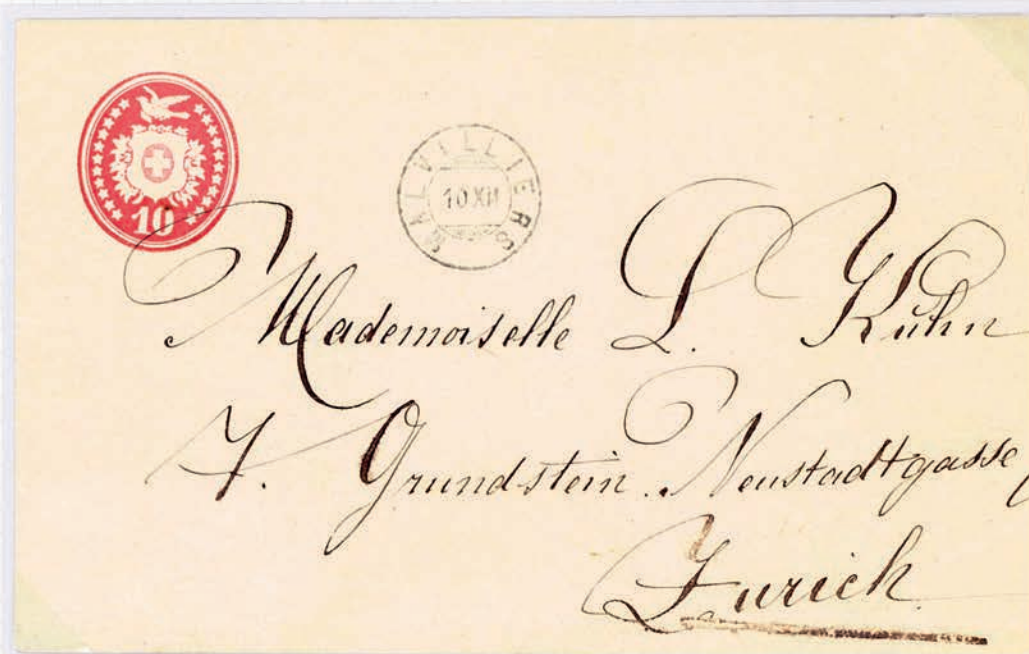 10
MALVILLIERS
10 XII
Mademoiselle L. Kuhn
7. Grundstein. Neustadtgasse
Zurich